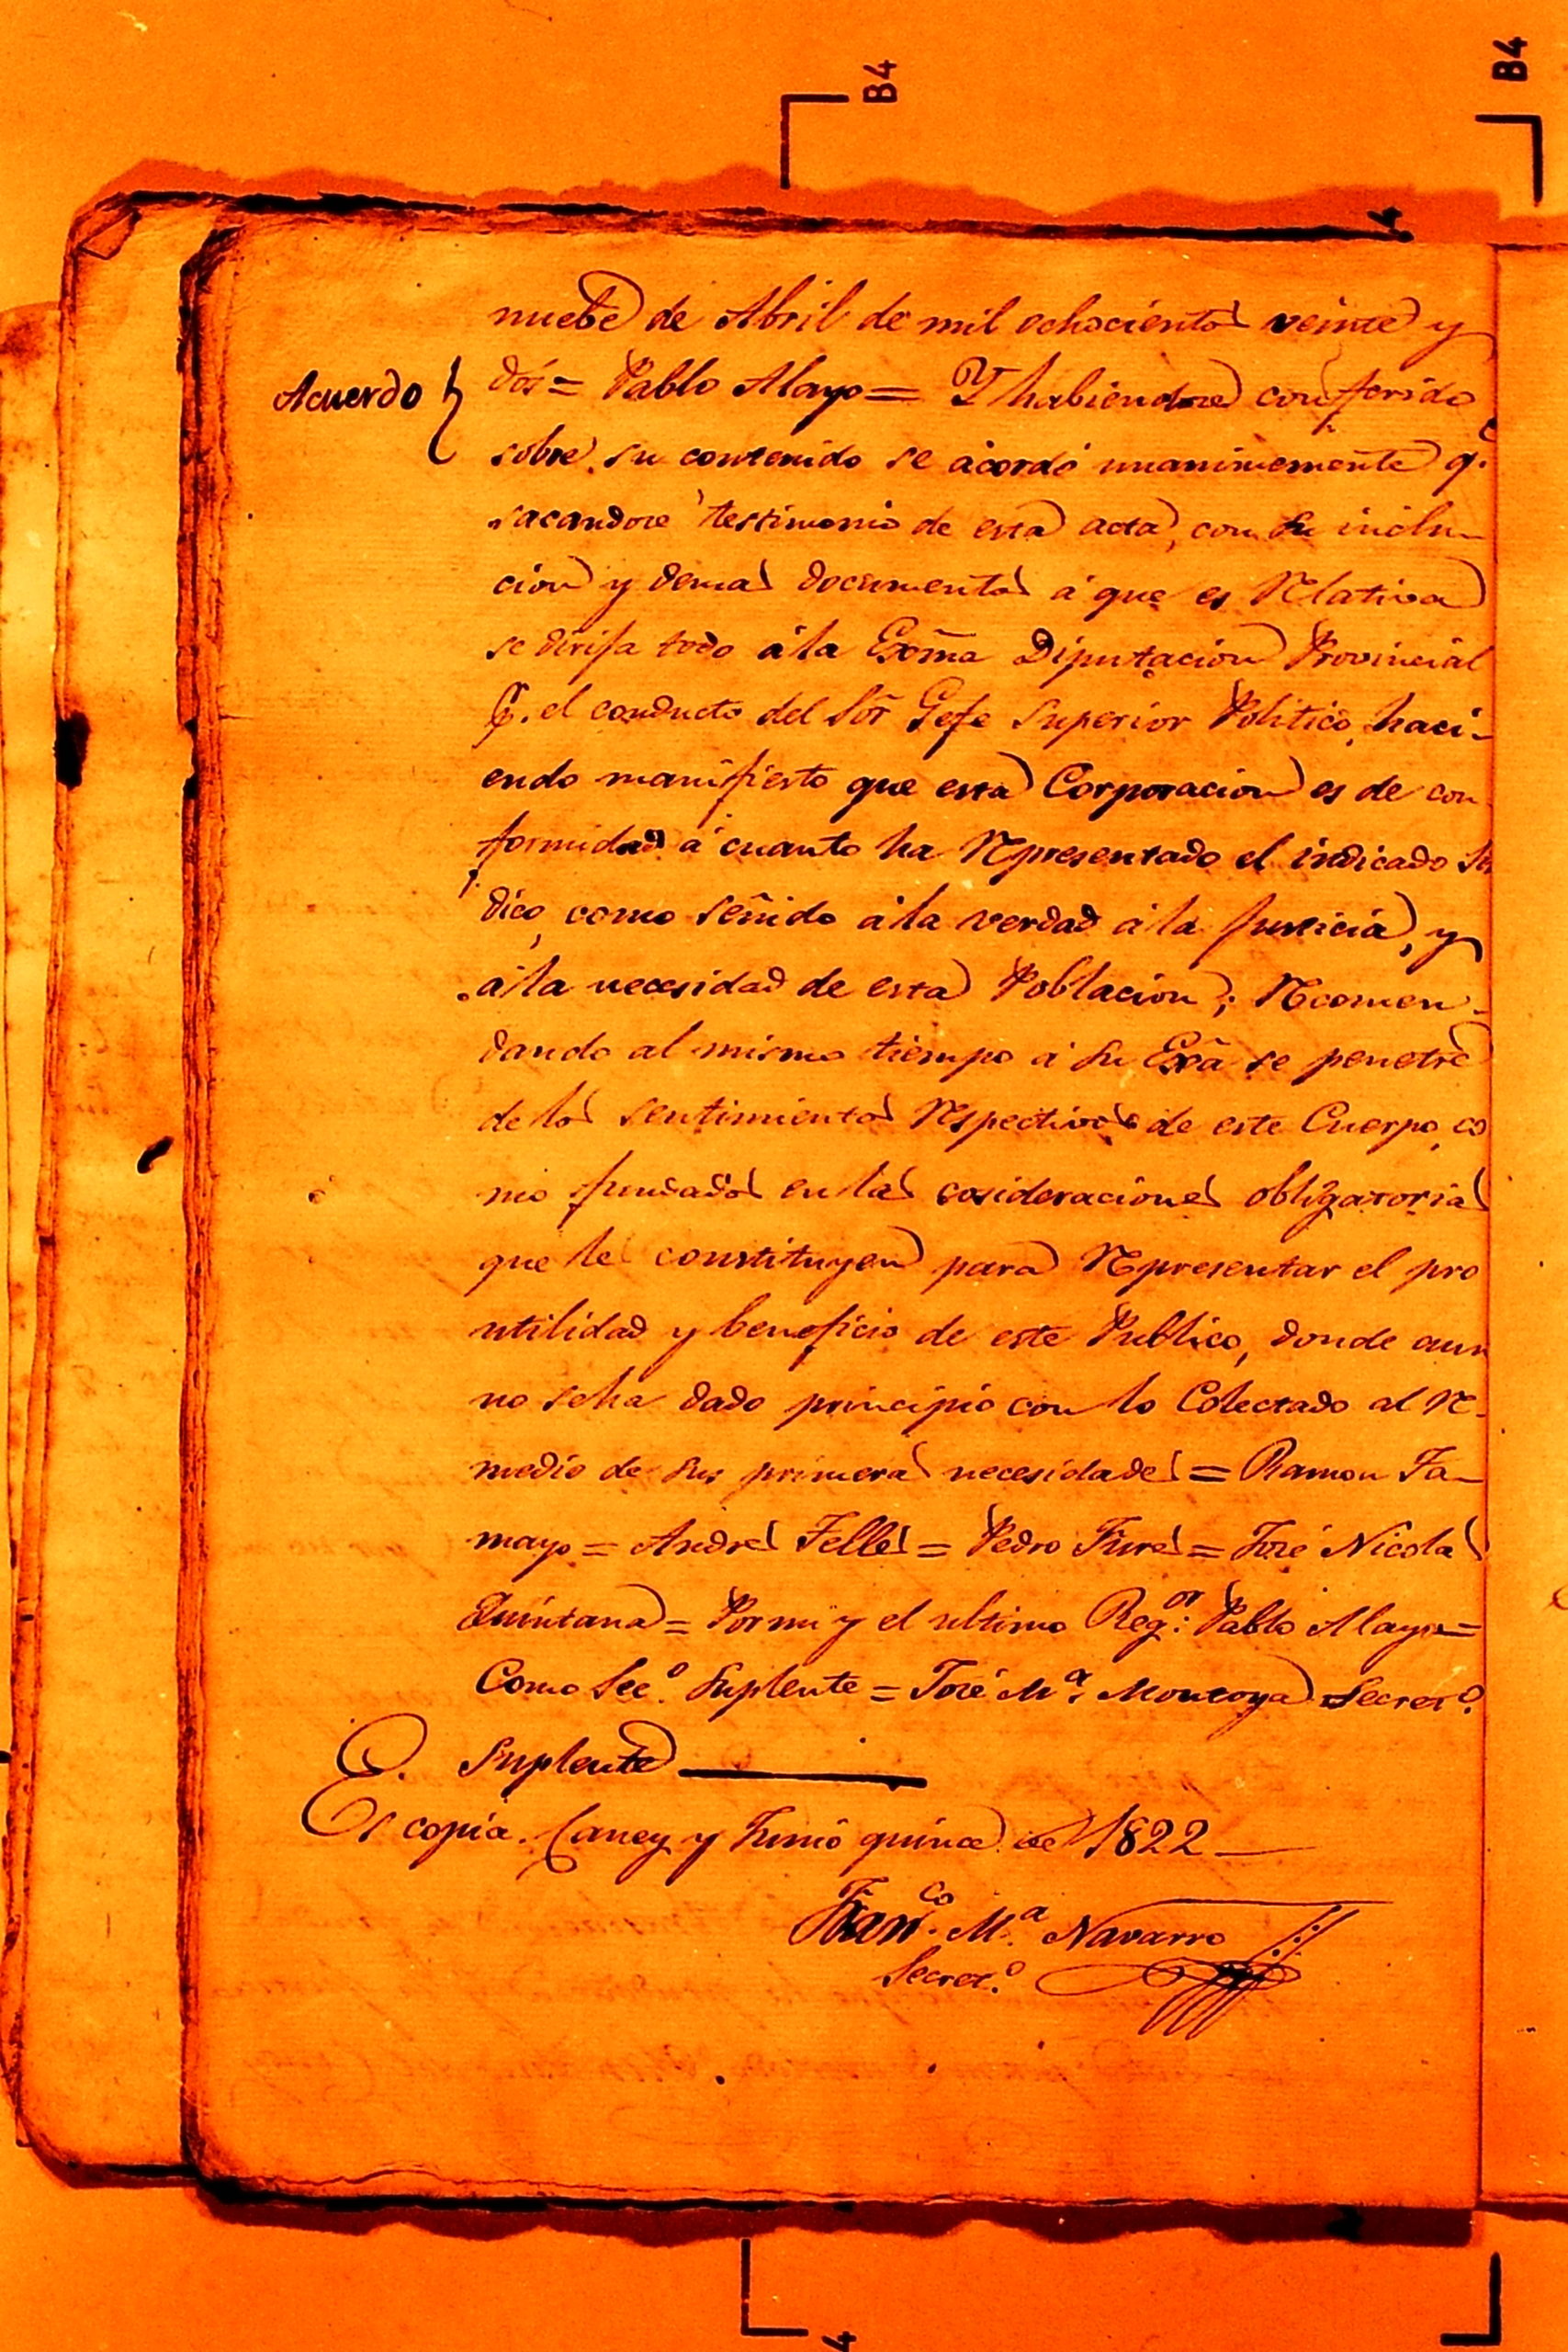 B4
B4
nuebe de Abril de mil ochocientos veinte y
Acuerdo
dós = Pablo Alayo = Y habiendose conferido
sobre su contenido se acordó unanimemente q.e
sacandose testimonio de esta acta, con su inclu-
cion y demas documentos á que es Relativa
se dirija todo á la Exõma Diputacion Provincial
P. el conducto del Sõr Gefe Superior Politico, haci-
endo manifiesto que esta Corporacion es de con
formidad á cuanto ha Representado el indicado Sin
dico, como señido á la verdad á la Justicia, y
á la necesidad de esta Poblacion; Recomen-
dando al mismo tiempo á Su Exã se penetre
de los sentimientos Respectivos de este Cuerpo, co
mo fundados en las cosideraciones obligatorias
que le constituyen para Representar el pro
utilidad y beneficio de este Publico, donde aun
no seha dado principio con lo Colectado al Re-
medio de sus primeras necesidades = Ramon Ta-
mayo = Andres Telles = Pedro = José Nicolas
Quintana = Por mi y el ultimo Reg.or Pablo Alayo =
Como Sec.o Suplente = José M.a Montoya Secret.o
Suplente
Es copia. Caney y Junio quince de 1822
Fran.co M.a Navarro
Secret.o
4